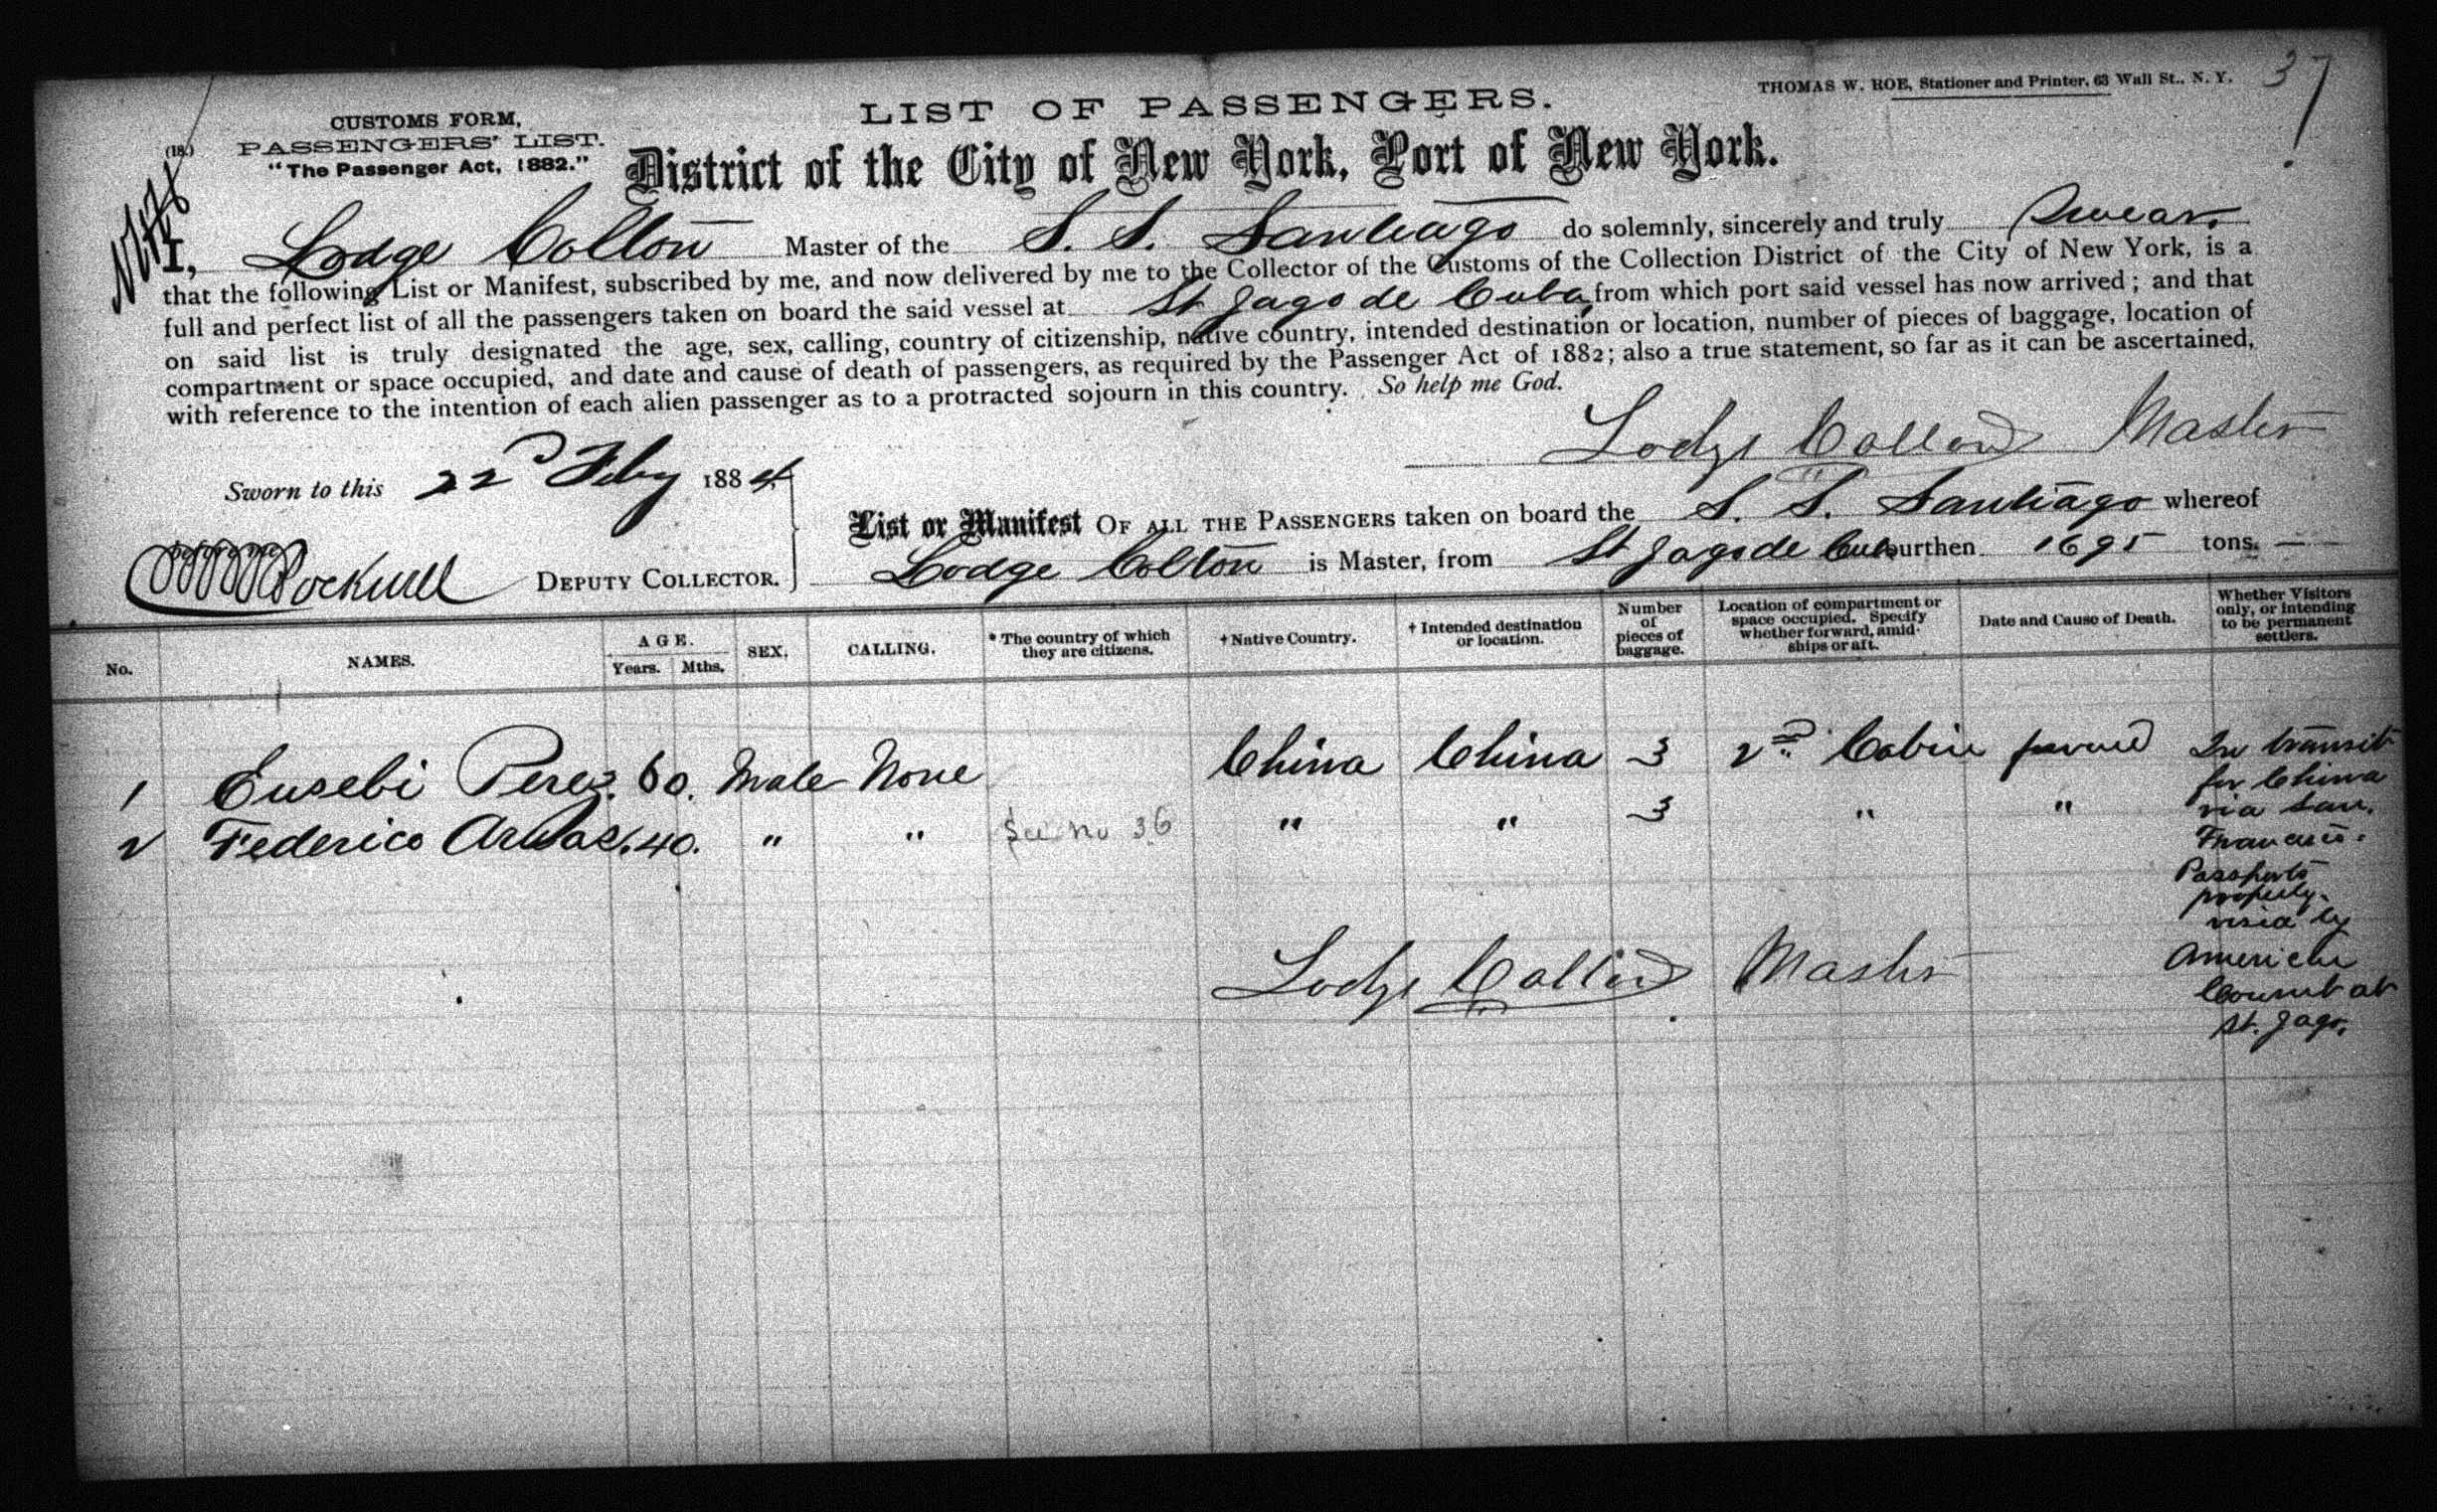 THOMAS W. ROE, Stationer and Printer, 63 Wall St., N. Y. 37
LIST OF PASSENGERS.
CUSTOMS FORM,
(18.) PASSENGERS' LIST.
"The Passenger Act, 1882."
District of the City of New York, Port of New York.
I, Lodge Colton Master of the S. S. Santiago do solemnly, sincerely and truly swear,
that the following List or Manifest, subscribed by me, and now delivered by me to the Collector of the Customs of the Collection District of the City of New York, is a
full and perfect list of all the passengers taken on board the said vessel at St Jago de Cuba from which port said vessel has now arrived; and that
on said list is truly designated the age, sex, calling, country of citizenship, native country, intended destination or location, number of pieces of baggage, location of
compartment or space occupied, and date and cause of death of passengers, as required by the Passenger Act of 1882; also a true statement, so far as it can be ascertained,
with reference to the intention of each alien passenger as to a protracted sojourn in this country. So help me God.
Lodge Colton Master
Sworn to this 22d Feby 1884
List or Manifest OF ALL THE PASSENGERS taken on board the S. S. Santiago whereof
before me
Rockwell DEPUTY COLLECTOR.
Lodge Colton is Master, from St Jago de Cuba burthen 1695 tons.
No. NAMES. AGE. Years. Mths. SEX. CALLING. * The country of which they are citizens. † Native Country. † Intended destination or location. Number of pieces of baggage. Location of compartment or space occupied. Specify whether forward, amidships or aft. Date and Cause of Death. Whether Visitors only, or intending to be permanent settlers.
1 Eusebi Perez. 60. Male None China China 3 2nd Cabin In transit
for China
2 Federico 40. " " See no 36 " " 3 " " via San
Francisco.
Passports
properly
visia by
American
Consul at
St. Jago.
Lodge Colton Master